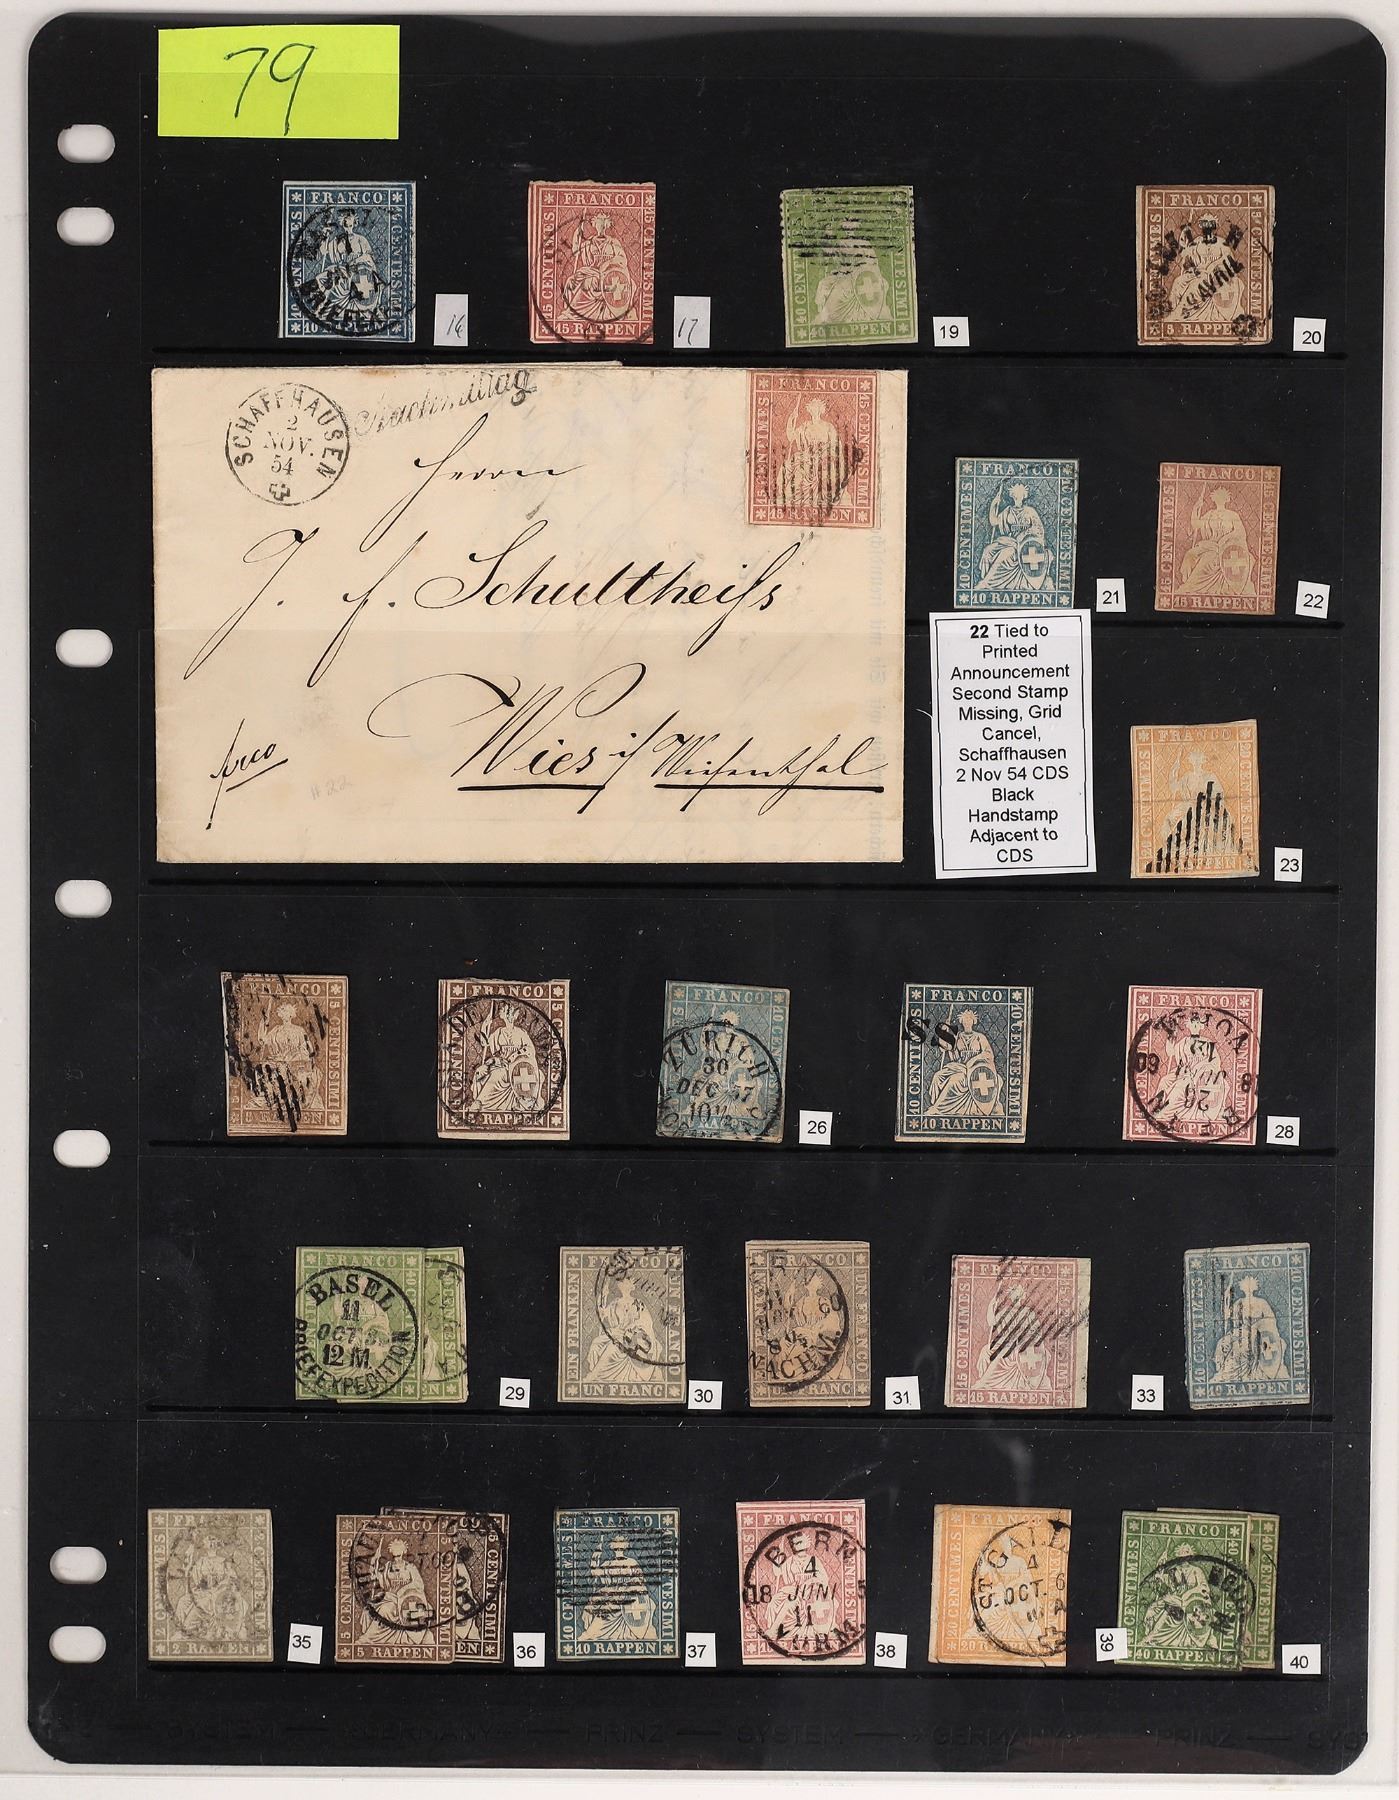 79
FRANCO
10 RAPPEN
16
FRANCO
15 CENTIMES
15 CENTESIMI
15 RAPPEN
17
FRANCO
40 RAPPEN
19
FRANCO
5 RAPPEN
20
SCHAFFHAUSEN
2
NOV.
54
Nachmittag
FRANCO
15 CENTIMES
15 CENTESIMI
15 RAPPEN
Herrn
J. f. Schultheiſs
Wies i/ Wiesenthal
frco
#22
FRANCO
10 CENTIMES
10 CENTESIMI
10 RAPPEN
21
FRANCO
15 CENTIMES
15 CENTESIMI
15 RAPPEN
22
22 Tied to
Printed
Announcement
Second Stamp
Missing, Grid
Cancel,
Schaffhausen
2 Nov 54 CDS
Black
Handstamp
Adjacent to
CDS
23
FRANCO
FRANCO
RAPPEN
FRANCO
ZÜRICH
30
DEC 57
26
FRANCO
10 CENTIMES
10 CENTESIMI
10 RAPPEN
FRANCO
28
FRANCO
BASEL
11
OCT
12 M
BRIEFEXPEDITION
29
EIN FRANKEN
UN FRANC
30
FRANCO
NACHM.
31
FRANCO
15 CENTIMES
15 RAPPEN
33
10 CENTESIMI
10 RAPPEN
2 RAPPEN
35
FRANCO
5 CENTIMES
5 RAPPEN
36
10 CENTIMES
10 RAPPEN
37
FRANCO
BERN
4
18 JUNI 5
11
38
20 CENTIMES
20 RAPPEN
ST GALLEN
4
OCT. 6
39
FRANCO
40 CENTIMES
40 RAPPEN
40
SYSTEM — GERMANY — PRINZ — SYSTEM — GERMANY — PRINZ — SYS